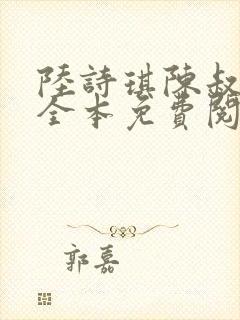 陸詩琪陳叔
全本免費閱
郭嘉